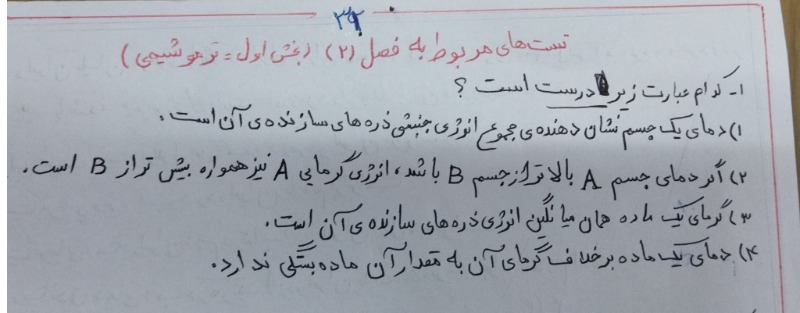 ۳۲
تست‌های مربوط به فصل (۲) (بخش اول = ترموشیمی)
۱- کدام عبارت زیر درست است ؟
۱) دمای یک جسم نشان دهنده‌ی مجموع انرژی جنبشی ذره های سازنده‌ی آن است.
۲) اگر دمای جسم A بالاتر از جسم B باشد، انرژی گرمایی A نیز همواره بیش تر از B است.
۳) گرمای یک ماده همان میانگین انرژی ذره های سازنده‌ی آن است.
۴) دمای یک ماده برخلاف گرمای آن به مقدار آن ماده بستگی ندارد.